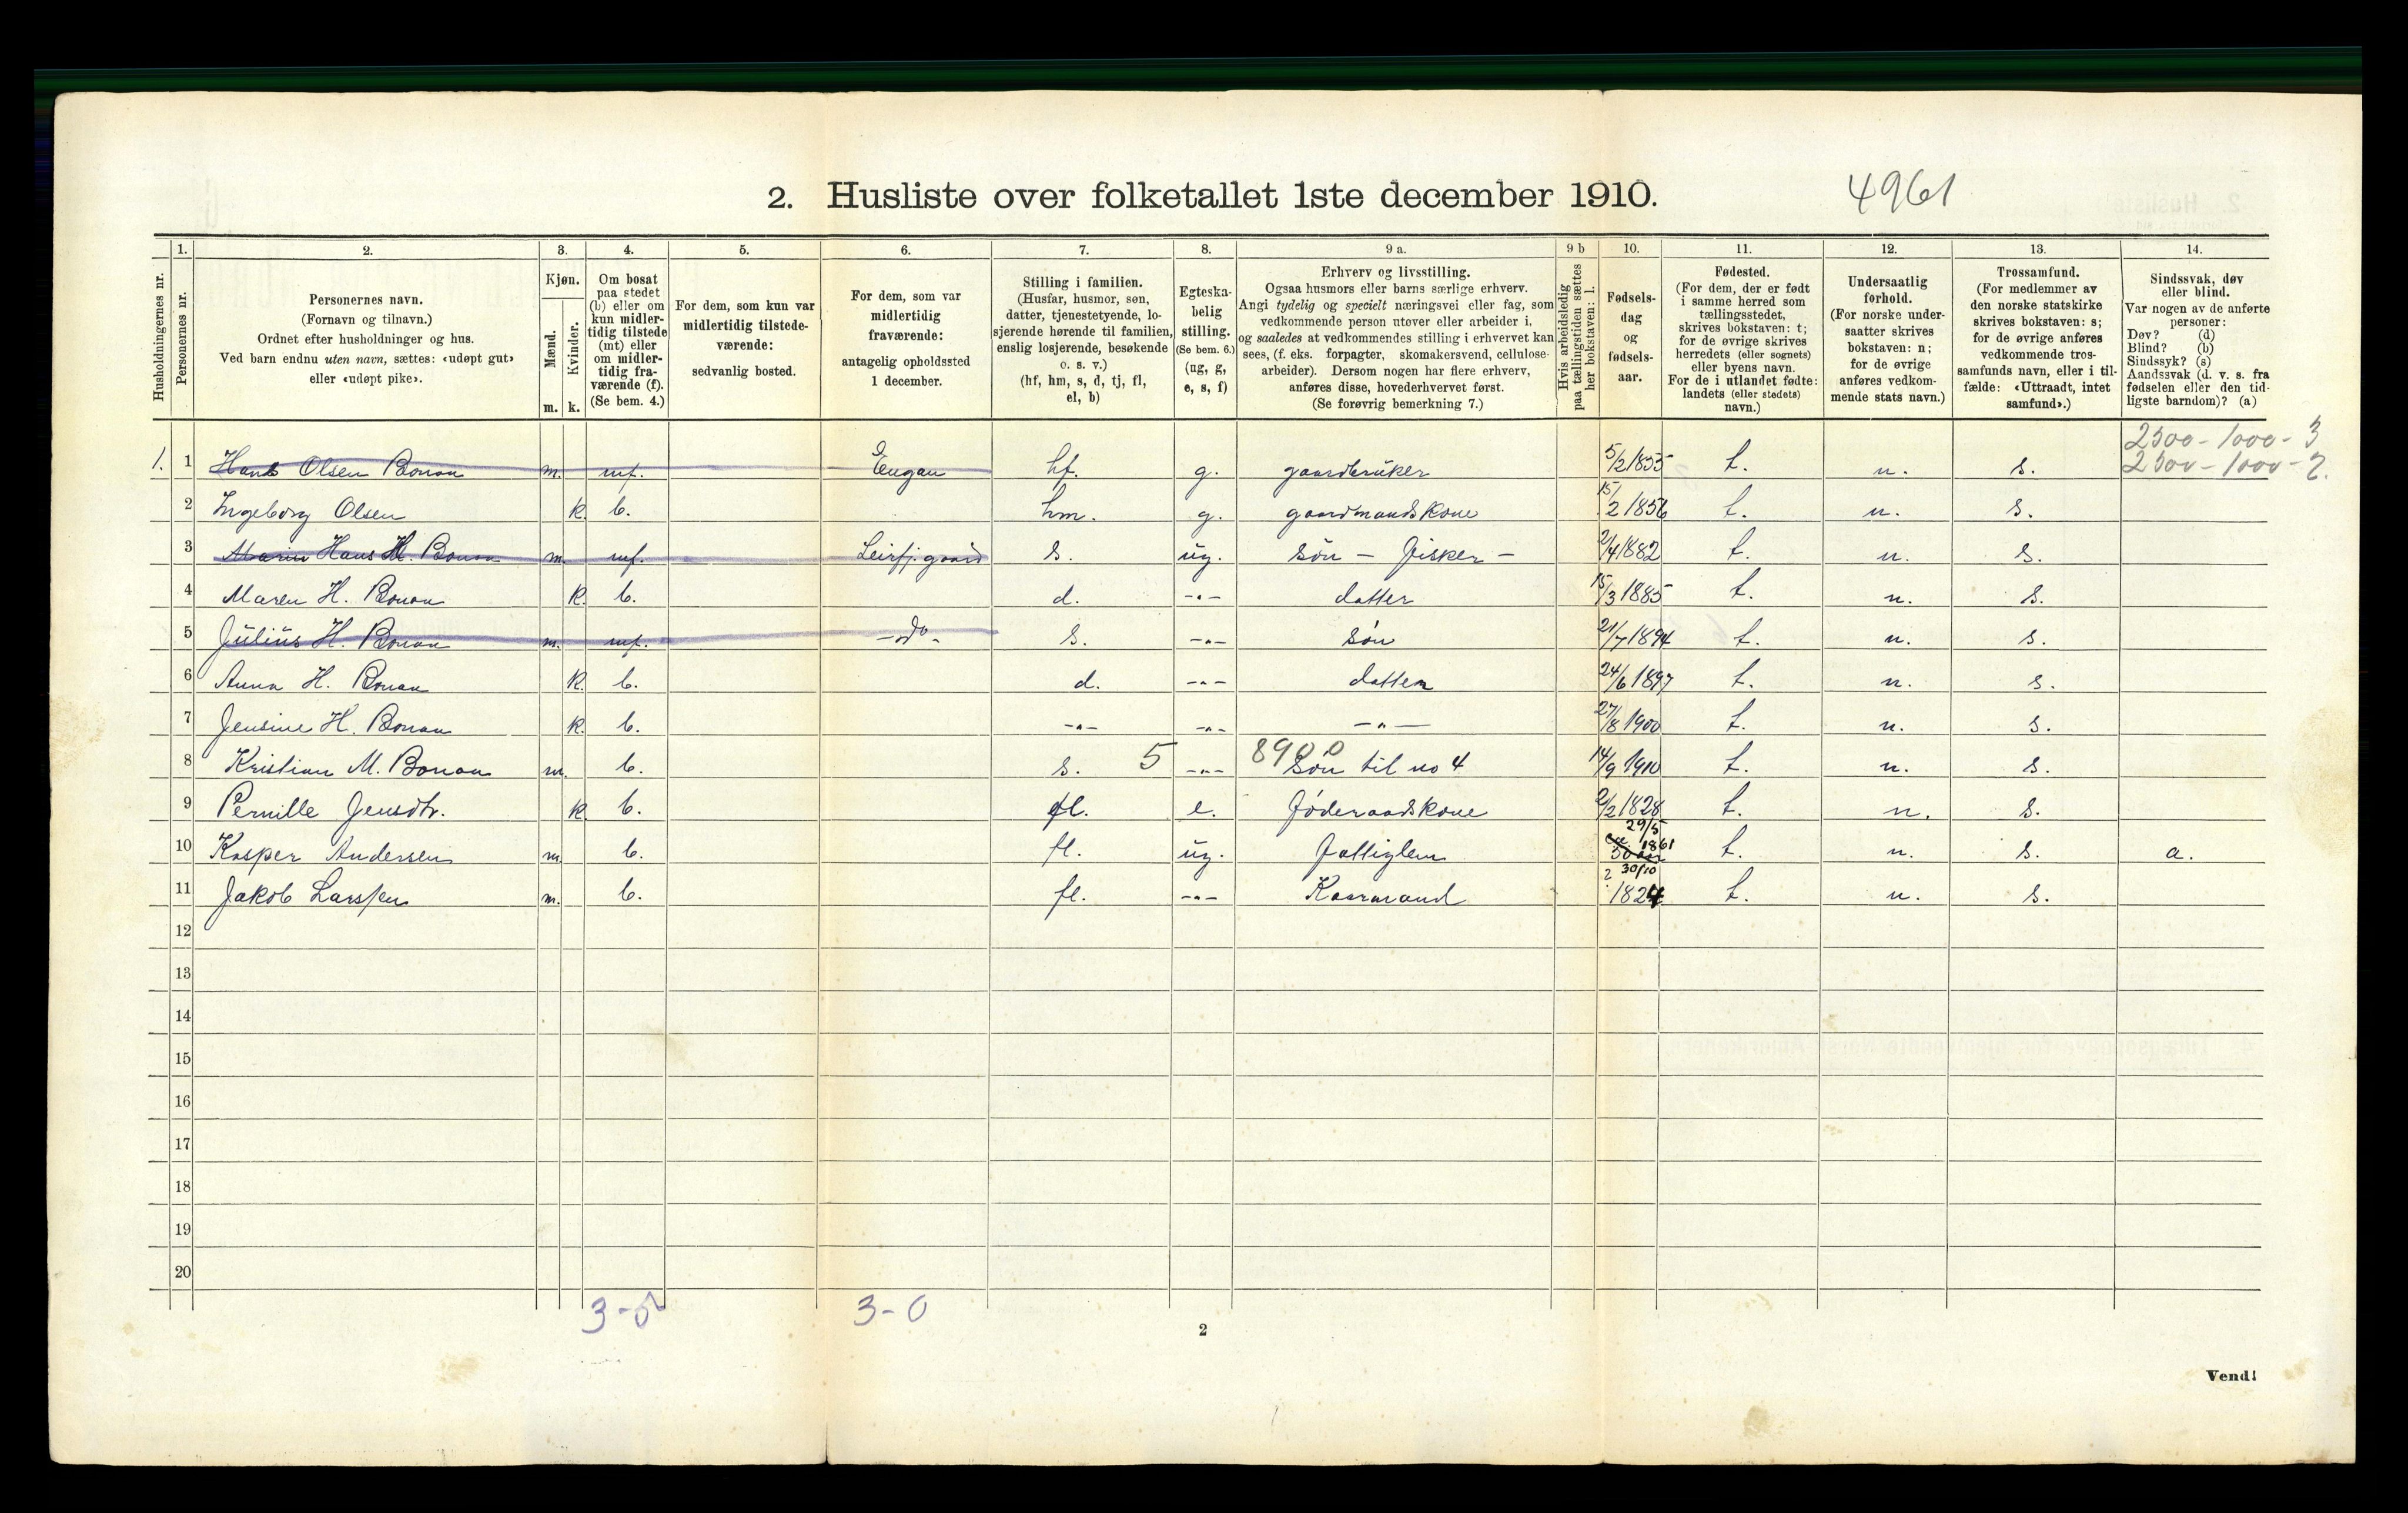 2. Husliste over folketallet 1ste december 1910. 4961
1. 2. 3. 4. 5. 6. 7. 8. 9 a. 9 b 10. 11. 12. 13. 14.
Husholdningernes nr.
Personernes nr.
Personernes navn.
(Fornavn og tilnavn.)
Ordnet efter husholdninger og hus.
Ved barn endnu uten navn, sættes: «udøpt gut»
eller «udøpt pike».
Kjøn.
Mænd.
Kvinder.
m. k.
Om bosat
paa stedet
(b) eller om
kun midler-
tidig tilstede
(mt) eller
om midler-
tidig fra-
værende (f).
(Se bem. 4.)
For dem, som kun var
midlertidig tilstede-
værende:
sedvanlig bosted.
For dem, som var
midlertidig
fraværende:
antagelig opholdssted
1 december.
Stilling i familien.
(Husfar, husmor, søn,
datter, tjenestetyende, lo-
sjerende hørende til familien,
enslig losjerende, besøkende
o. s. v.)
(hf, hm, s, d, tj, fl,
el, b)
Egteska-
belig
stilling.
(Se bem. 6.)
(ug, g,
e, s, f)
Erhverv og livsstilling.
Ogsaa husmors eller barns særlige erhverv.
Angi tydelig og specielt næringsvei eller fag, som
vedkommende person utøver eller arbeider i,
og saaledes at vedkommendes stilling i erhvervet kan
sees, (f. eks. forpagter, skomakersvend, cellulose-
arbeider). Dersom nogen har flere erhverv,
anføres disse, hovederhvervet først.
(Se forøvrig bemerkning 7.)
Hvis arbeidsledig
paa tællingstiden sættes
her bokstaven: l.
Fødsels-
dag
og
fødsels-
aar.
Fødested.
(For dem, der er født
i samme herred som
tællingsstedet,
skrives bokstaven: t;
for de øvrige skrives
herredets (eller sognets)
eller byens navn.
For de i utlandet fødte:
landets (eller stedets)
navn.)
Undersaatlig
forhold.
(For norske under-
saatter skrives
bokstaven: n;
for de øvrige
anføres vedkom-
mende stats navn.)
Trossamfund.
(For medlemmer av
den norske statskirke
skrives bokstaven: s;
for de øvrige anføres
vedkommende tros-
samfunds navn, eller i til-
fælde: «Uttraadt, intet
samfund».)
Sindssvak, døv
eller blind.
Var nogen av de anførte
personer:
Døv? (d)
Blind? (b)
Sindssyk? (s)
Aandssvak (d. v. s. fra
fødselen eller den tid-
ligste barndom)? (a)
2500 - 1000 - 3
1. 1 Hans Olsen Bonan m. mf. Engan hf. g. gaardbruker 5/2 1855 t. n. s. 2500 - 1000 - 2.
2 Ingeborg Olsen k. b. hm. g. gaardmandskone 15/2 1856 t. n. s.
3 Hans H. Bonan m. mf. Leirfj. gaard s. ug. søn - fisker - 2/4 1882 t. n. s.
4 Maren H. Bonan k. b. d. -"- datter 15/3 1885 t. n. s.
5 Julius H. Bonan m. mf. - do - s. -"- søn 21/7 1894 t. n. s.
6 Anna H. Bonan k. b. d. -"- datter 24/6 1897 t. n. s.
7 Jensine H. Bonan k. b. -"- -"- -"- 27/8 1900 t. n. s.
8 Kristian M. Bonan m. b. s. 5 -"- 8900 søn til no 4 14/9 1910 t. n. s.
9 Pernille Jensdtr. k. b. fl. e. føderaadskone 2/2 1828 t. n. s.
10 Kasper Andersen m. b. fl. ug. fattiglem 50 aar 29/5 1861 t. n. s. a.
11 Jakob Larssen m. b. fl. -"- Kaarmand 30/10 1824 t. n. s.
12
13
14
15
16
17
18
19
20
3 - 5 3 - 0
2
Vend!